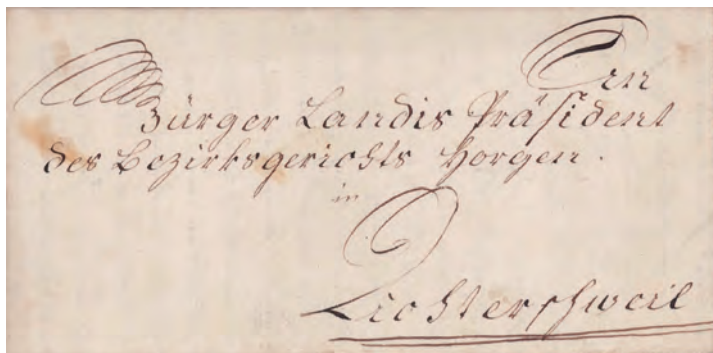 An
Bürger Landis Präsident
des Bezirksgerichts Horgen.
in
Richterschweil